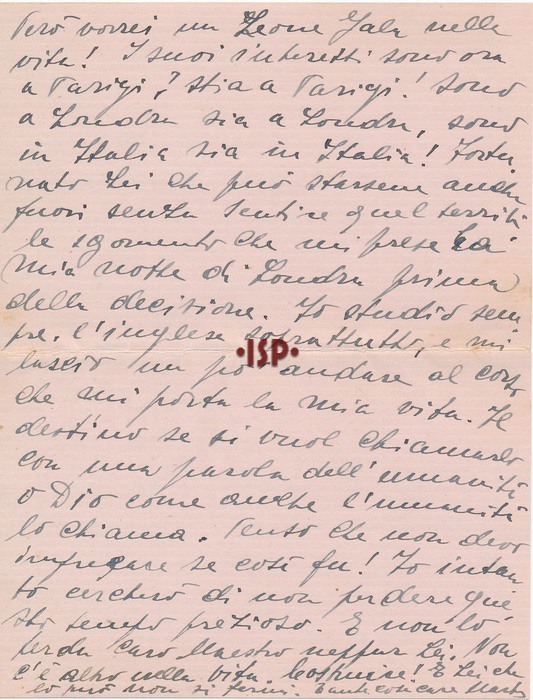 Però vorrei un Leone Gala nella
vita! I suoi interessi sono ora
a Parigi, stia a Parigi! Sono
a Londra sia a Londra, sono
in Italia sia in Italia! Fortu
nato Lei che può starsene anche
fuori senza sentire quel terribi
le sgomento che mi prese la
mia notte di Londra prima
della decisione. Io studio sem
pre. l'inglese soprattutto, e mi
•ISP•
lascio un po' andare al corso
che mi porta la mia vita. Il
destino se si vuol chiamarlo
con una parola dell'umanità
o Dio come anche l'umanità
lo chiama. Penso che non devo
imprecare se così fu! Io intan
to cercherò di non perdere que
sto tempo prezioso. E non lo
perda caro Maestro neppur Lei. Non
c'è altro nella vita. Costruire! E Lei che
lo può non si fermi. E anche con care